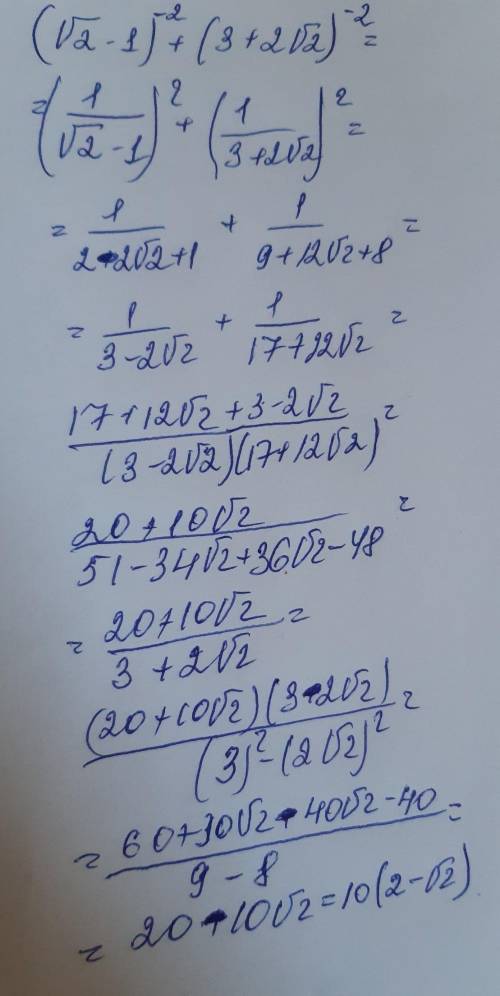 (√2 - 1)^-2 + (3 + 2√2)^-2 =
= (1/(√2 - 1))^2 + (1/(3 + 2√2))^2 =
= 1/(2 - 2√2 + 1) + 1/(9 + 12√2 + 8) =
= 1/(3 - 2√2) + 1/(17 + 12√2) =
(17 + 12√2 + 3 - 2√2)/((3 - 2√2)(17 + 12√2)) =
(20 + 10√2)/(51 - 34√2 + 36√2 - 48) =
= (20 + 10√2)/(3 + 2√2) =
((20 + 10√2)(3 - 2√2))/((3)^2 - (2√2)^2) =
= (60 + 30√2 - 40√2 - 40)/(9 - 8) =
= 20 - 10√2 = 10(2 - √2)